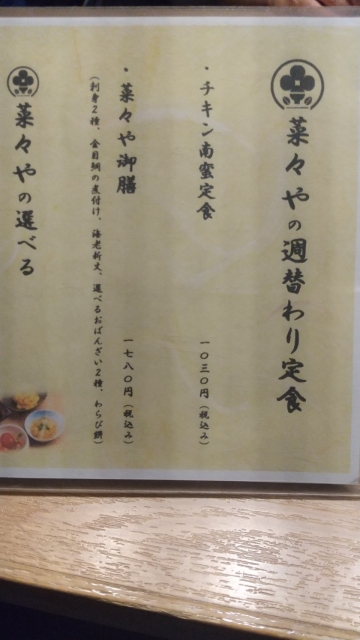 菜々やの週替わり定食
・チキン南蛮定食 一〇三〇円(税込み)
・菜々や御膳 一七八〇円(税込み)
(刺身2種、金目鯛の煮付け、海老新丈、選べるおばんざい2種、わらび餅)
菜々やの選べる